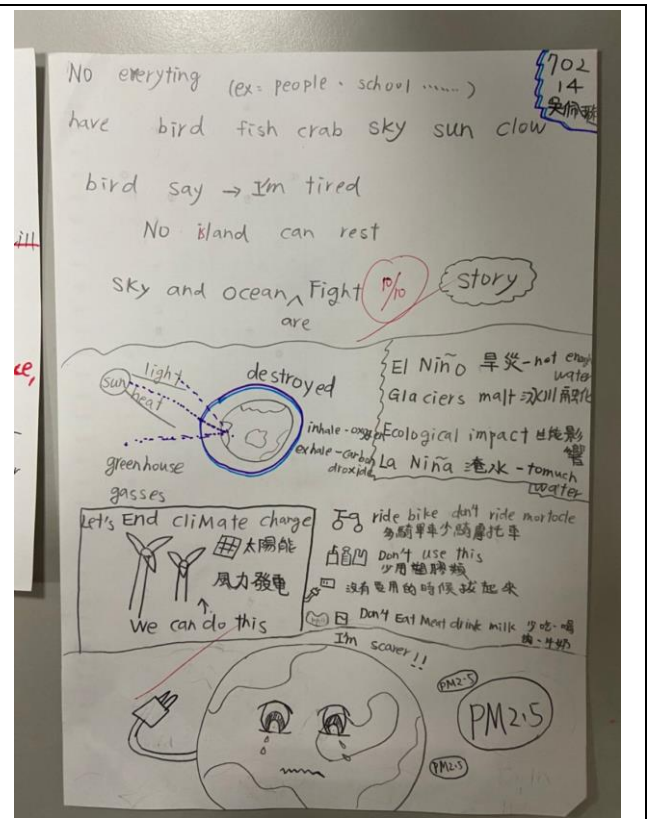 No everyting (ex: people、school ......)
702
14
have bird fish crab sky sun clow
bird say → I'm tired
No island can rest
sky and ocean ^ Fight
are
10/10
story
sun
light
heat
destroyed
inhale-oxygen
exhale-carbon
droxide
greenhouse
gasses
El Niño 旱災-not enough
water
Glaciers malt 冰川融化
Ecological impact 生態影
響
La Niña 淹水-tomuch
water
Let's End cliMate change
太陽能
風力發電
We can do this
ride bike don't ride mortocle
多騎單車少騎摩托車
Don't use this
少用塑膠類
沒有要用的時候拔起來
Don't Eat Meat drink milk 少吃、喝
肉、牛奶
I'm scarer!!
PM2.5
PM2.5
PM2.5
ill